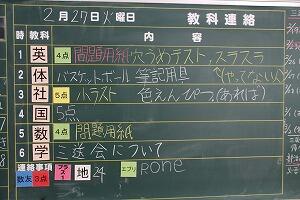 2月27日火曜日 教科連絡
時 教科 内容
1 英 4点 問題用紙 穴うめテスト、スラスラ
2 体 バスケットボール 筆記用具 (やってない人)
3 社 5点 小テスト 色えんぴつ(あれば)
4 国 5点
5 数 4点 問題用紙
6 学 三送会について
連絡事項 数友 3点 プラス1 地 4 エプリ none